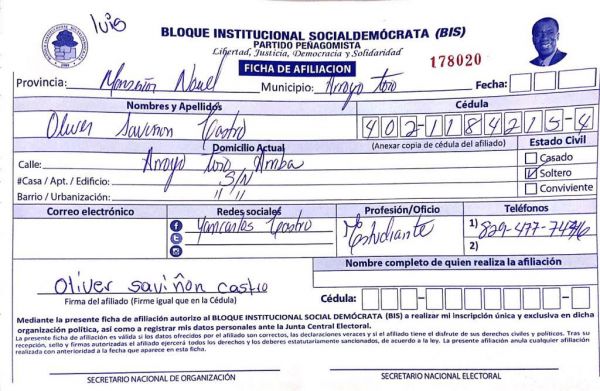 luis
BLOQUE INSTITUCIONAL SOCIALDEMÓCRATA (BIS)
PARTIDO PEÑAGOMISTA
Libertad, Justicia, Democracia y Solidaridad
FICHA DE AFILIACION
178020
Provincia: Monseñor Nouel Municipio: Arroyo Toro Fecha:
Nombres y Apellidos Cédula
Oliver Saviñon Castro 402-1184215-4
(Anexar copia de cédula del afiliado)
Domicilio Actual Estado Civil
Calle: Arroyo Toro Arriba
Casado
#Casa / Apt. / Edificio: S/N
Soltero
Barrio / Urbanización: " "
Conviviente
Correo electrónico Redes sociales Profesión/Oficio Teléfonos
Yancarlos Castro Estudiante 1) 829-477-74
2)
Nombre completo de quien realiza la afiliación
Oliver saviñon castro
Firma del afiliado (Firme igual que en la Cédula) Cédula:
Mediante la presente ficha de afiliación autorizo al BLOQUE INSTITUCIONAL SOCIAL DEMÓCRATA (BIS) a realizar mi inscripción única y exclusiva en dicha
organización política, así como a registrar mis datos personales ante la Junta Central Electoral.
La presente ficha de afiliación es válida si los datos ofrecidos por el afiliado son correctos, las declaraciones veraces y si el afiliado tiene el disfrute de sus derechos civiles y políticos. Tras su
recepción, sello y firmas autorizadas el afiliado ejercerá todos los derechos y los deberes estatutariamente sancionados, de acuerdo a la ley. La presente afiliación anula cualquier afiliación
realizada con anterioridad a la fecha que aparece en esta ficha.
SECRETARIO NACIONAL DE ORGANIZACIÓN SECRETARIO NACIONAL ELECTORAL